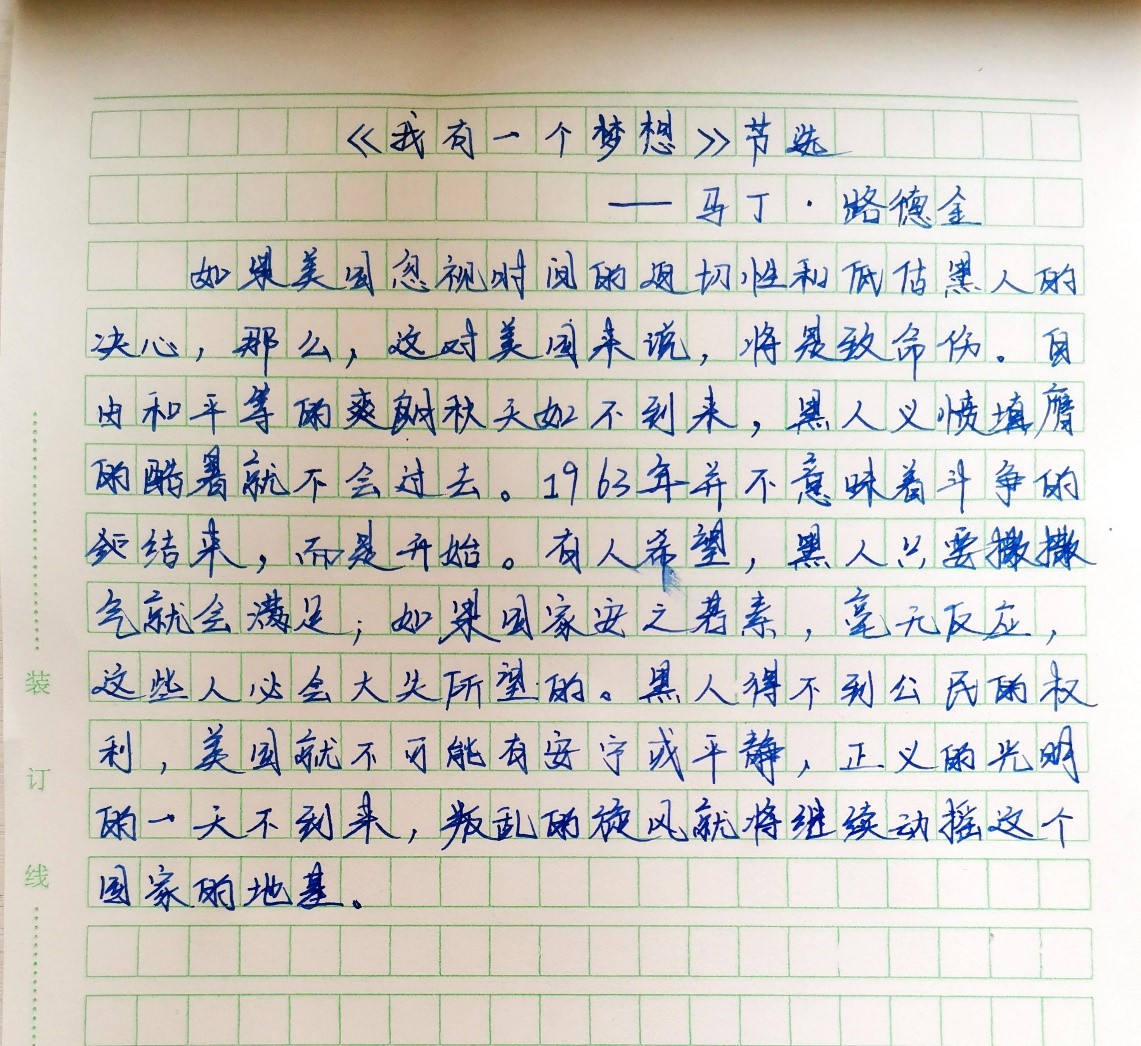 《我有一个梦想》节选
——马丁·路德金
如果美国忽视时间的迫切性和低估黑人的
决心，那么，这对美国来说，将是致命伤。自
由和平等的爽朗秋天如不到来，黑人义愤填膺
的酷暑就不会过去。1963年并不意味着斗争的
结来，而是开始。有人希望，黑人只要撒撒
气就会满足；如果国家安之若素，毫无反应，
这些人必会大失所望的。黑人得不到公民的权
利，美国就不可能有安宁或平静，正义的光明
的一天不到来，叛乱的旋风就将继续动摇这个
国家的地基。
装
订
线